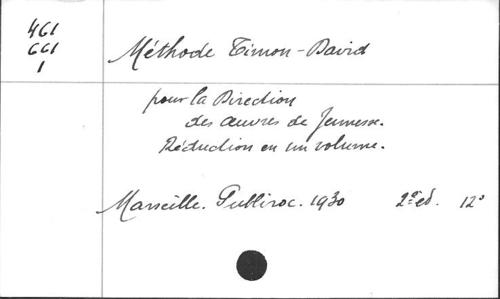 461
661
1
Méthode Timon-David
pour la Direction
des œuvres de Jeunesse.
Réduction en un volume.
Marseille. Publiroc. 1930 2e ed. 12°